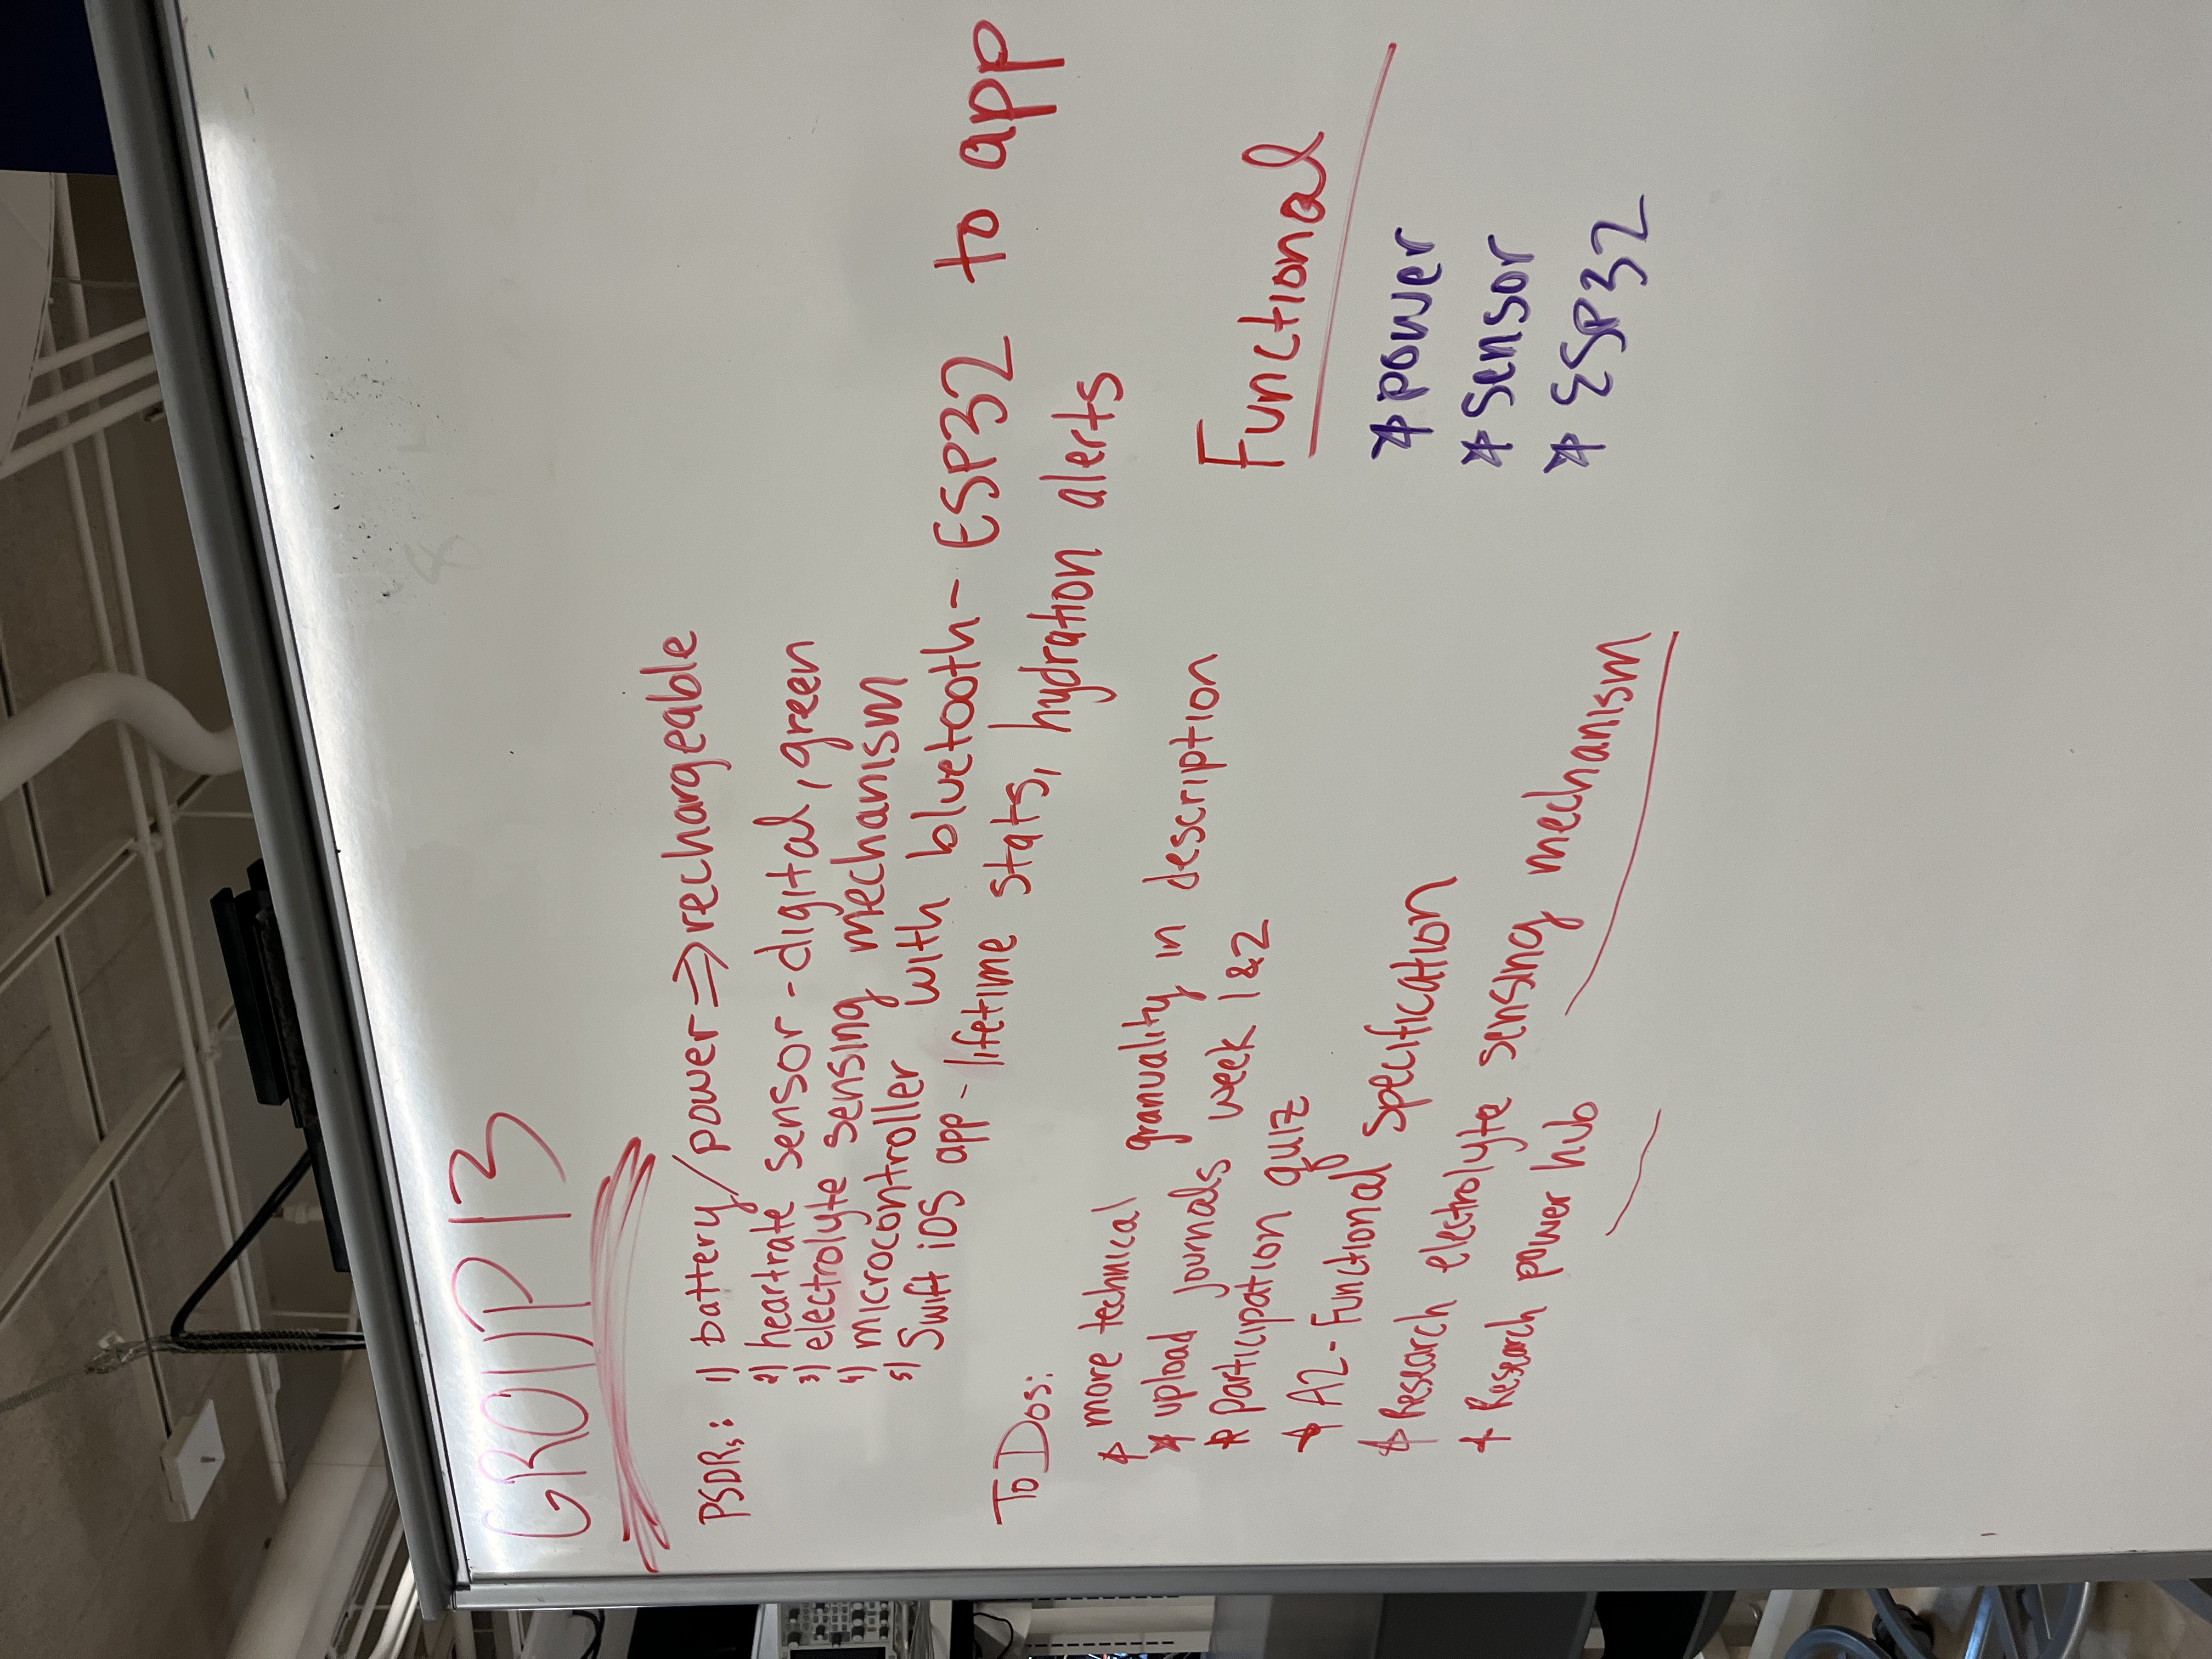 GROUP 13
PSDRs: 1) battery/power => rechargeable
2) heartrate sensor - digital, green
3) electrolyte sensing mechanism
4) microcontroller with bluetooth - ESP32 to app
5) Swift iOS app - lifetime stats, hydration alerts
To Dos:
* more technical granuality in description
* upload journals week 1&2
* participation quiz
* A2 - Functional Specification
* Research electrolyte sensing mechanism
* Research power hub
Functional
* power
* sensor
* ESP32